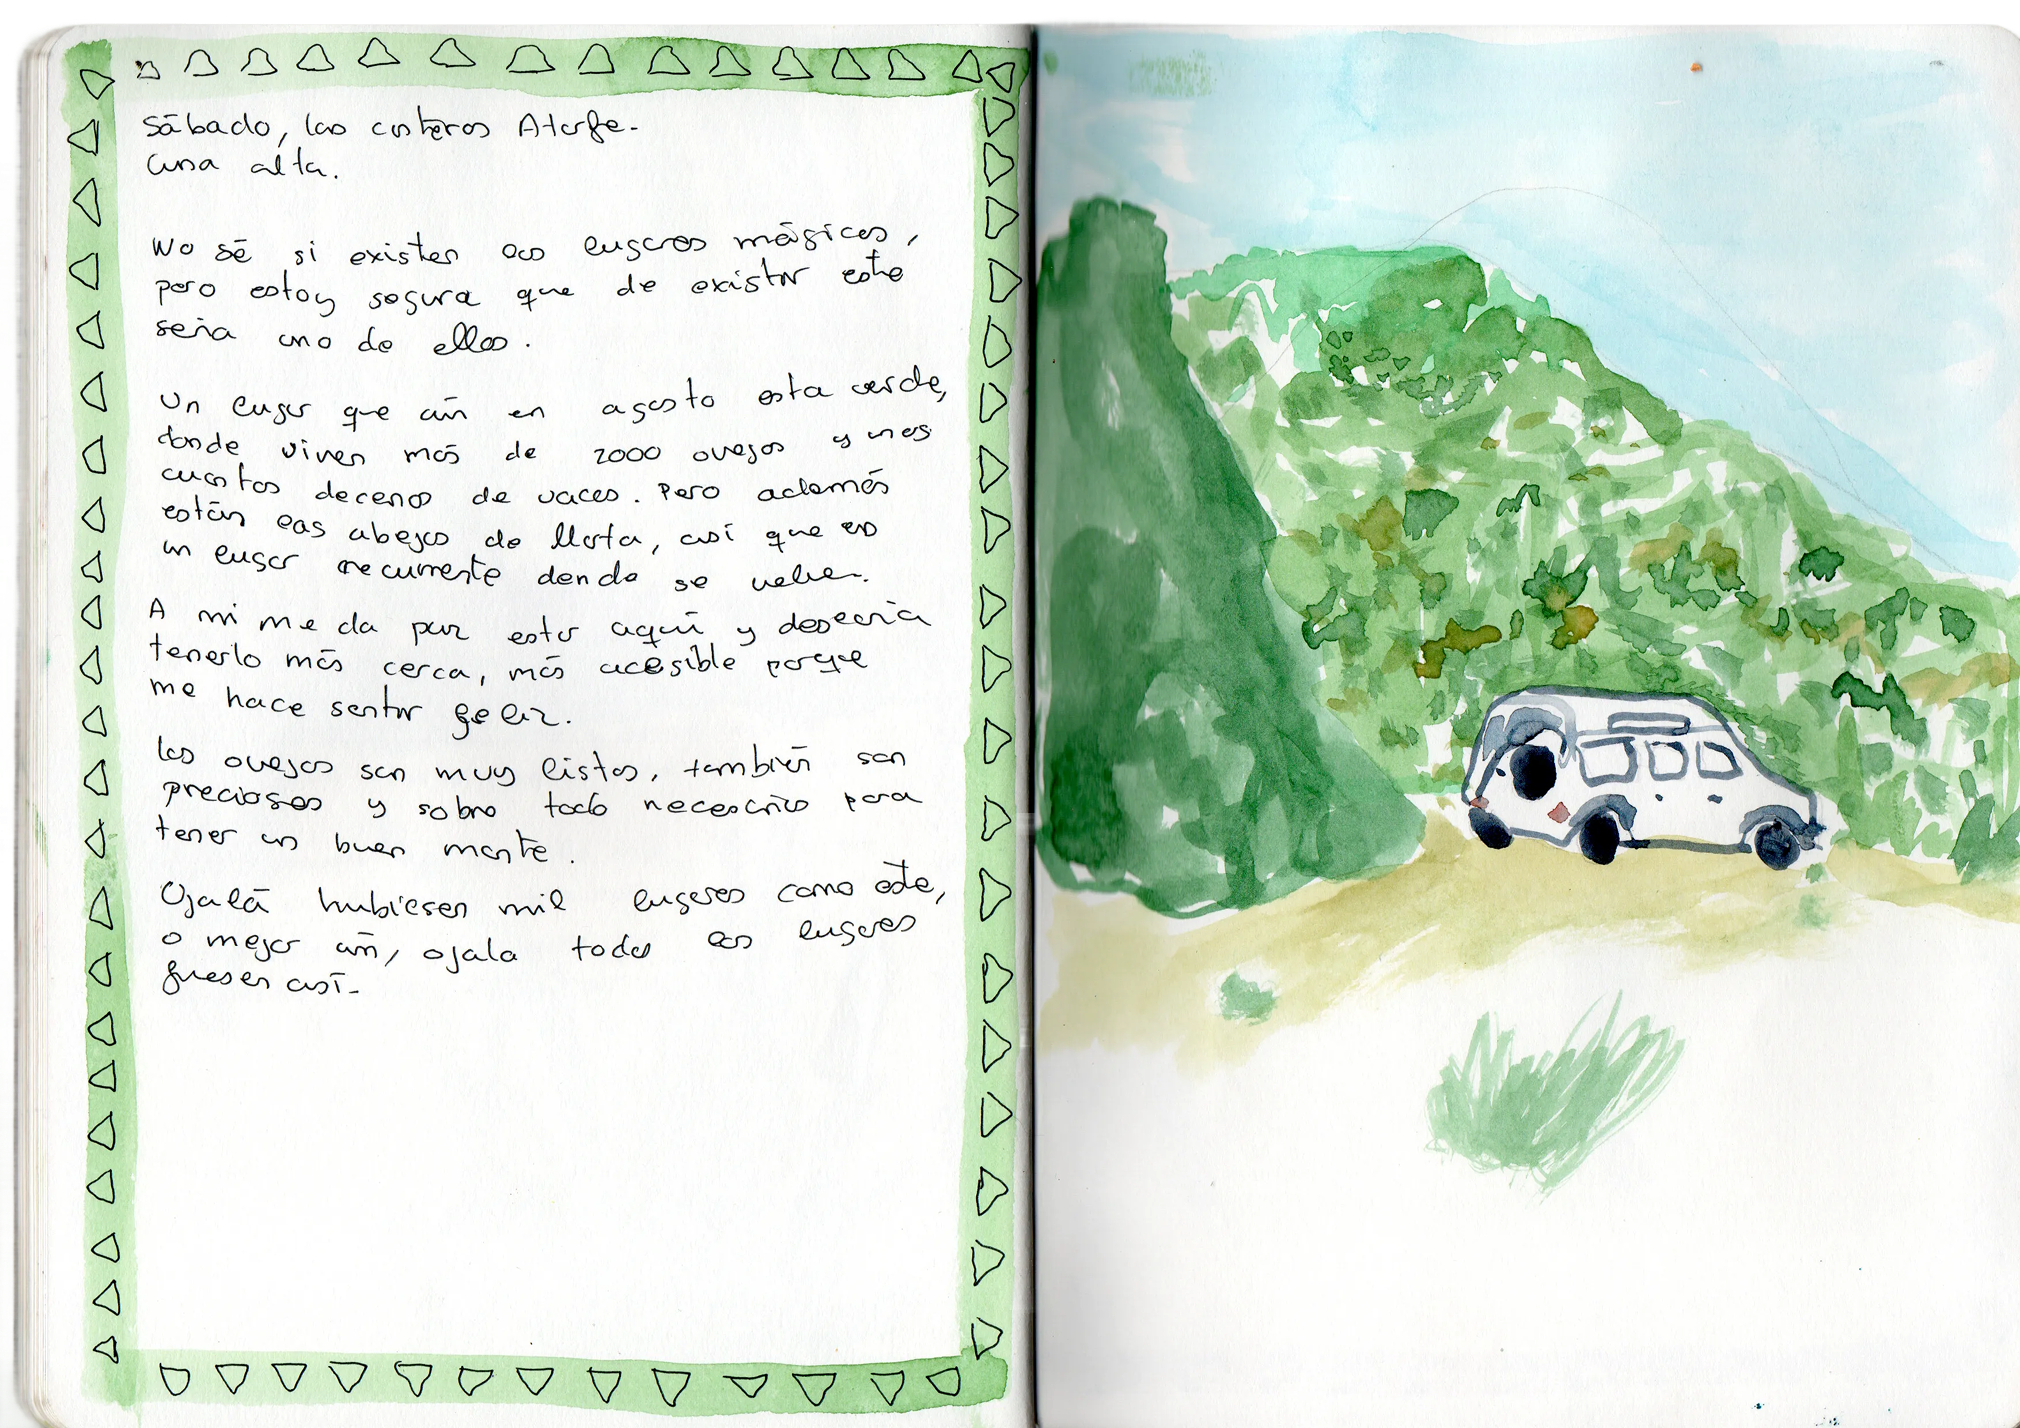 Sábado, las canteras Atarfe.
luna alta.
No sé si existen los lugares mágicos,
pero estoy segura que de existir este
sería uno de ellos.
Un lugar que aún en agosto esta verde,
donde viven más de 2000 ovejas y unas
cuantas decenas de vacas. Pero además
están las abejas de Marta, así que es
un lugar recurrente donde se vuelve.
A mi me da paz estar aquí y desearía
tenerlo más cerca, más acesible porque
me hace sentir feliz.
Las ovejas son muy listas, también son
preciosas y sobre todo necesarias para
tener un buen monte.
Ojalá hubiesen mil lugares como este,
o mejor aún, ojala todos los lugares
fuesen así.